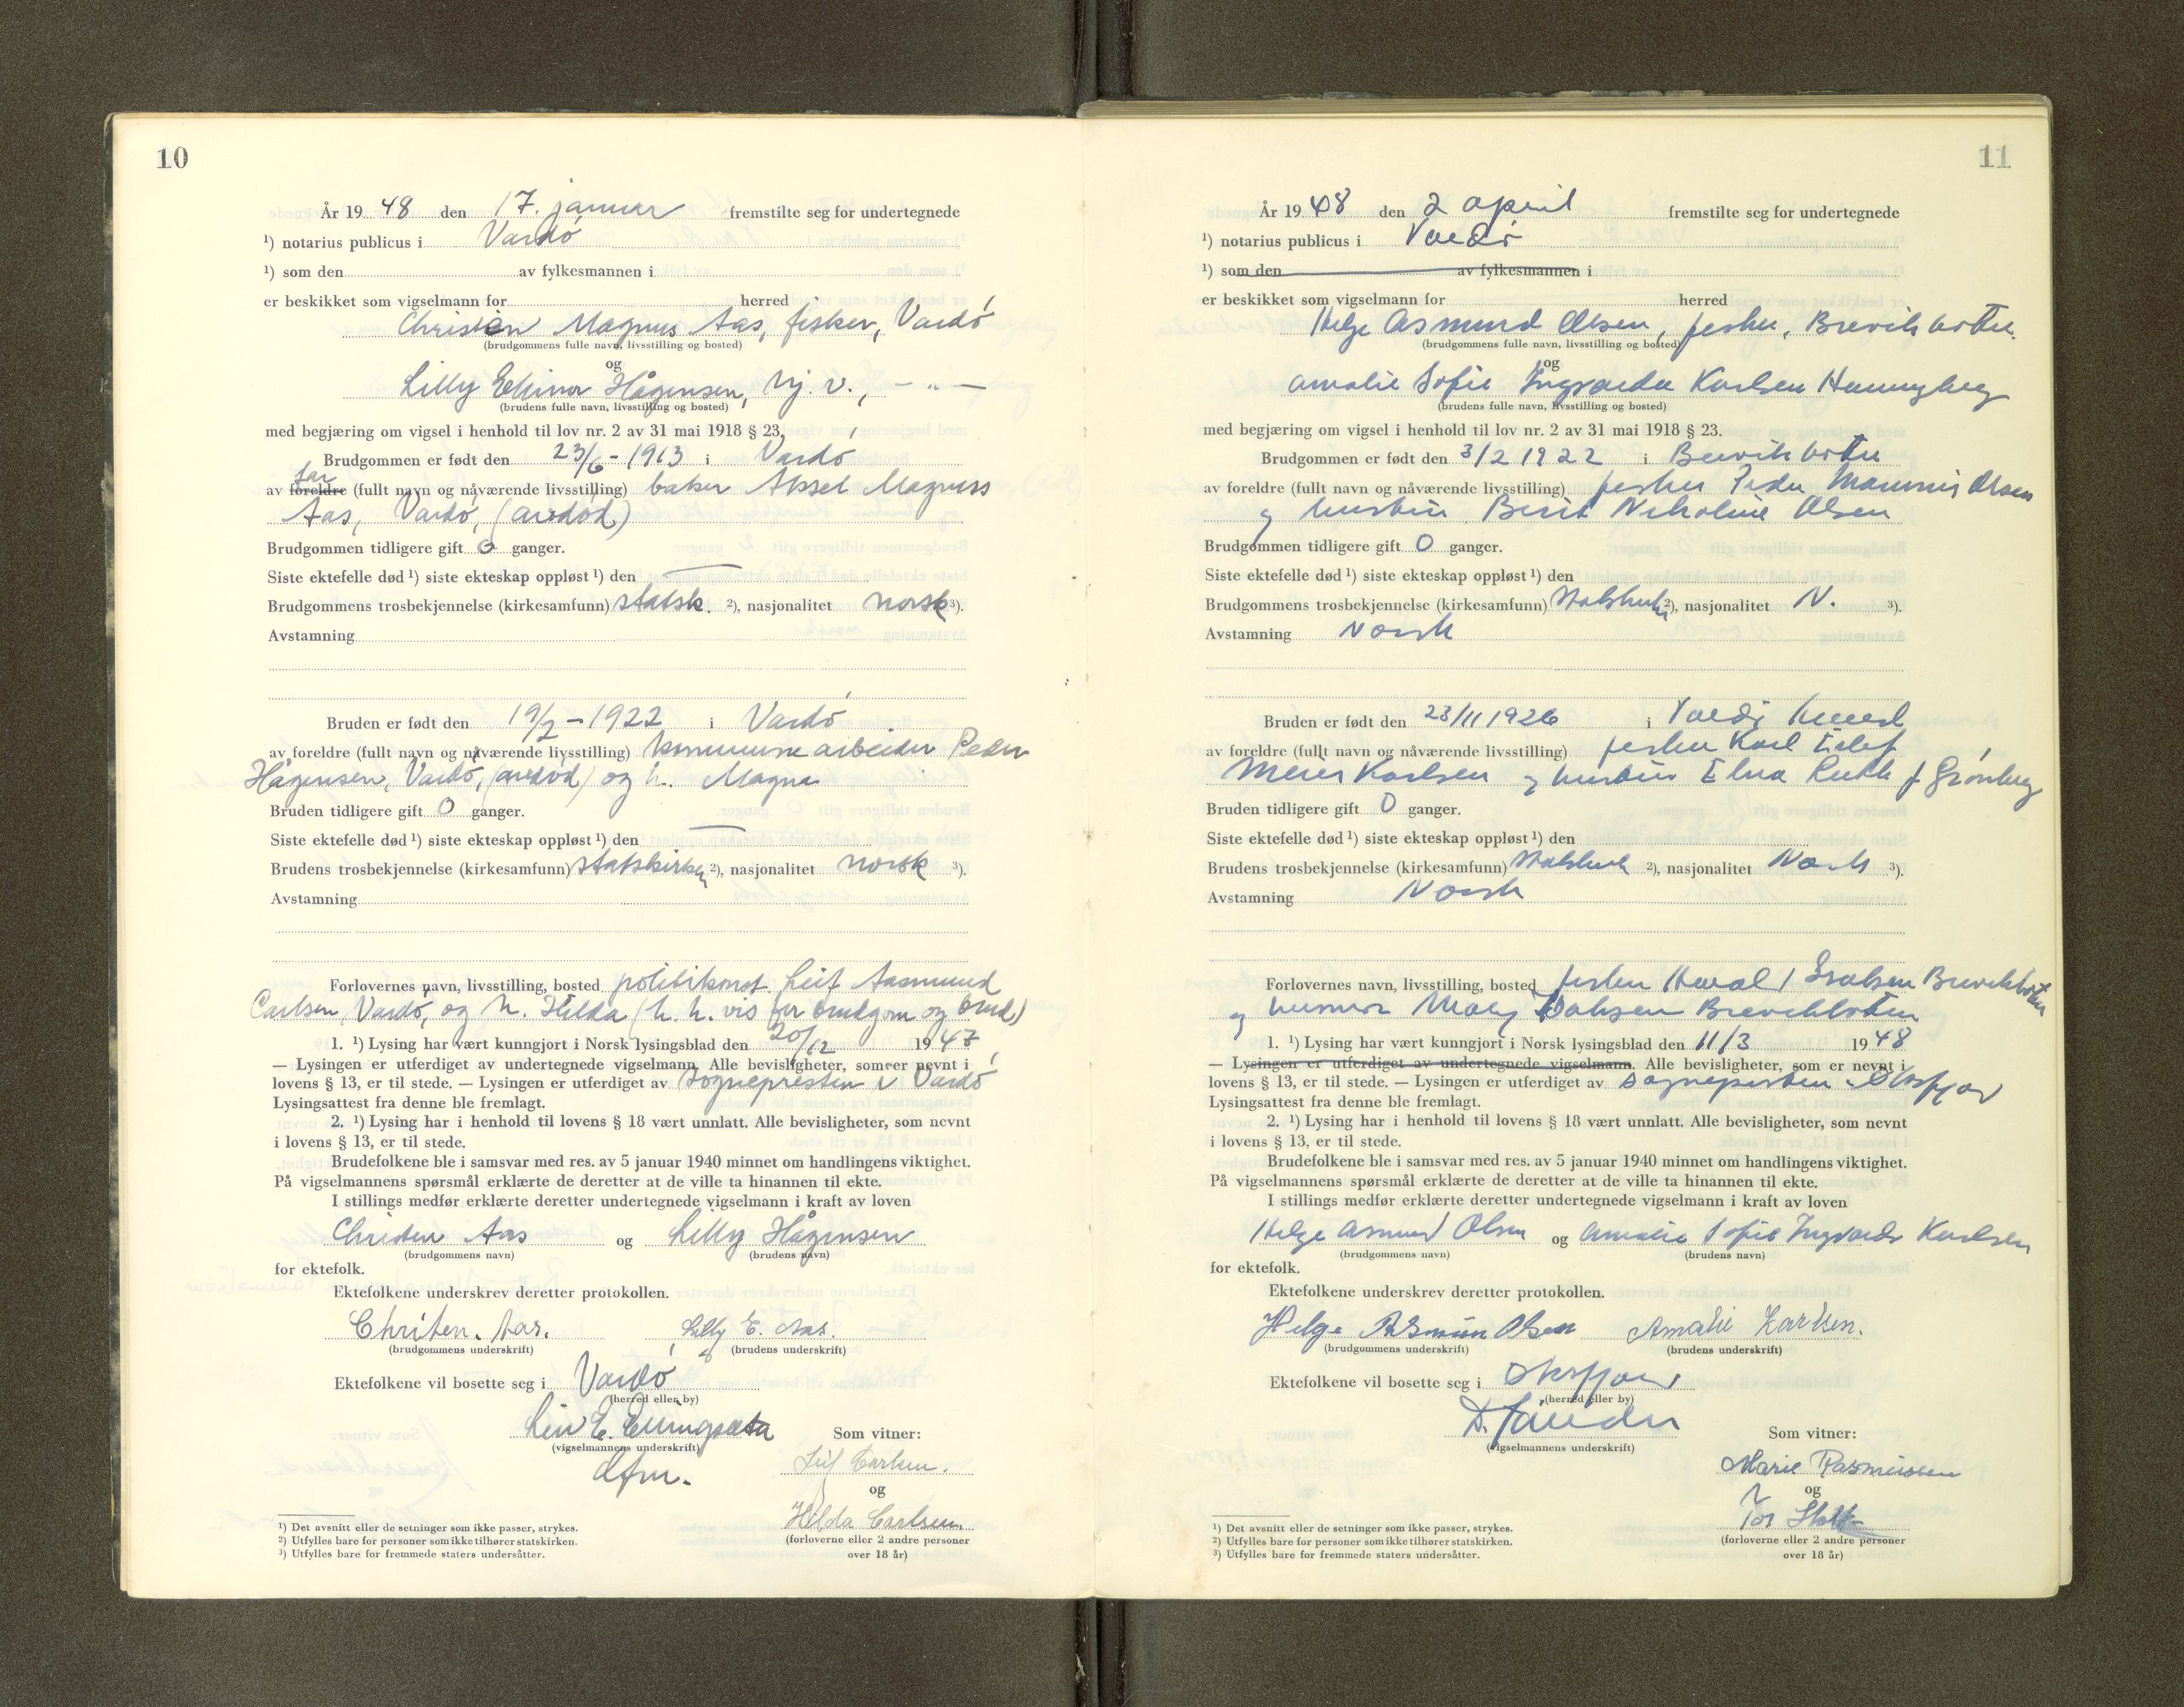 10
År 1948 den 17. januar fremstilte seg for undertegnede
¹) notarius publicus i Vardø
¹) som den av fylkesmannen i
er beskikket som vigselmann for herred
Christen Magnus Aas, fisker, Vardø
(brudgommens fulle navn, livsstilling og bosted)
og
Lilly Elinor Hågensen, hj. v., — " —
(brudens fulle navn, livsstilling og bosted)
med begjæring om vigsel i henhold til lov nr. 2 av 31 mai 1918 § 23.
Brudgommen er født den 23/6 - 1913 i Vardø
far
av foreldre (fullt navn og nåværende livsstilling) baker Aksel Magnus
Aas, Vardø, (avdød)
Brudgommen tidligere gift 0 ganger.
Siste ektefelle død ¹) siste ekteskap oppløst ¹) den —
Brudgommens trosbekjennelse (kirkesamfunn) statsk. ²), nasjonalitet norsk ³).
Avstamning
Bruden er født den 19/2 - 1922 i Vardø
av foreldre (fullt navn og nåværende livsstilling) kommunearbeider Peder
Hågensen, Vardø, (avdød) og h. Magna
Bruden tidligere gift 0 ganger.
Siste ektefelle død ¹) siste ekteskap oppløst ¹) den —
Brudens trosbekjennelse (kirkesamfunn) statskirken ²), nasjonalitet norsk ³).
Avstamning
Forlovernes navn, livsstilling, bosted politikonst. Leif Aasmund
Carlsen, Vardø, og h. Hilda (h. h. vis for brudgom og brud)
1. ¹) Lysing har vært kunngjort i Norsk lysingsblad den 20/12 1947
— Lysingen er utferdiget av undertegnede vigselmann. Alle bevisligheter, som er nevnt i
lovens § 13, er til stede. — Lysingen er utferdiget av sognepresten i Vardø
Lysingsattest fra denne ble fremlagt.
2. ¹) Lysing har i henhold til lovens § 18 vært unnlatt. Alle bevisligheter, som nevnt
i lovens § 13, er til stede.
Brudefolkene ble i samsvar med res. av 5 januar 1940 minnet om handlingens viktighet.
På vigselmannens spørsmål erklærte de deretter at de ville ta hinannen til ekte.
I stillings medfør erklærte deretter undertegnede vigselmann i kraft av loven
Christen Aas og Lilly Hågensen
(brudgommens navn) (brudens navn)
for ektefolk.
Ektefolkene underskrev deretter protokollen.
Christen. Aas. Lilly E. Aas.
(brudgommens underskrift) (brudens underskrift)
Ektefolkene vil bosette seg i Vardø
(herred eller by)
E. Ellingsæter
(vigselmannens underskrift)
dfm.
Som vitner:
Leif Carlsen.
og
Hilda Carlsen.
(forloverne eller 2 andre personer
over 18 år)
¹) Det avsnitt eller de setninger som ikke passer, strykes.
²) Utfylles bare for personer som ikke tilhører statskirken.
³) Utfylles bare for fremmede staters undersåtter.
11
År 1948 den 2 april fremstilte seg for undertegnede
¹) notarius publicus i Vardø
¹) som den av fylkesmannen i
er beskikket som vigselmann for herred
Helge Asmund Olsen, fisker, Brevikbotn.
(brudgommens fulle navn, livsstilling og bosted)
og
Amalie Sofie Ingvarda Karlsen Hamningberg
(brudens fulle navn, livsstilling og bosted)
med begjæring om vigsel i henhold til lov nr. 2 av 31 mai 1918 § 23.
Brudgommen er født den 3/2 1922 i Brevikbotn
av foreldre (fullt navn og nåværende livsstilling) fisker Peder Olsen
og hustru Berit Nikoline Olsen
Brudgommen tidligere gift 0 ganger.
Siste ektefelle død ¹) siste ekteskap oppløst ¹) den
Brudgommens trosbekjennelse (kirkesamfunn) Statskirk ²), nasjonalitet N. ³).
Avstamning Norsk
Bruden er født den 23/11 1926 i Vardø herred
av foreldre (fullt navn og nåværende livsstilling) fisker Karl Eilef
Meier Karlsen og hustru Elna Ruth f Grønberg
Bruden tidligere gift 0 ganger.
Siste ektefelle død ¹) siste ekteskap oppløst ¹) den
Brudens trosbekjennelse (kirkesamfunn) Statskirk ²), nasjonalitet Norsk ³).
Avstamning Norsk
Forlovernes navn, livsstilling, bosted fisker Harald Isaksen Brevikbotn
og husmor Brevikbotn
1. ¹) Lysing har vært kunngjort i Norsk lysingsblad den 11/3 1948
— Lysingen er utferdiget av undertegnede vigselmann. Alle bevisligheter, som er nevnt i
lovens § 13, er til stede. — Lysingen er utferdiget av sognepresten
Lysingsattest fra denne ble fremlagt.
2. ¹) Lysing har i henhold til lovens § 18 vært unnlatt. Alle bevisligheter, som nevnt
i lovens § 13, er til stede.
Brudefolkene ble i samsvar med res. av 5 januar 1940 minnet om handlingens viktighet.
På vigselmannens spørsmål erklærte de deretter at de ville ta hinannen til ekte.
I stillings medfør erklærte deretter undertegnede vigselmann i kraft av loven
Helge Asmund Olsen og Amalie Sofie Ingvarda Karlsen
(brudgommens navn) (brudens navn)
for ektefolk.
Ektefolkene underskrev deretter protokollen.
Helge Asmun Olsen Amalie Karlsen.
(brudgommens underskrift) (brudens underskrift)
Ektefolkene vil bosette seg i
(herred eller by)
(vigselmannens underskrift)
Som vitner:
Marie Rasmussen
og
Tor
(forloverne eller 2 andre personer
over 18 år)
¹) Det avsnitt eller de setninger som ikke passer, strykes.
²) Utfylles bare for personer som ikke tilhører statskirken.
³) Utfylles bare for fremmede staters undersåtter.